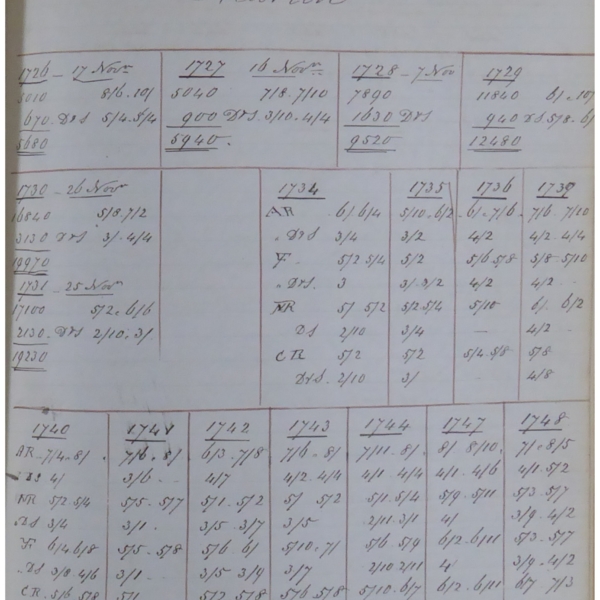 1726 - 17 Novr
5010 8/6 . 10/
670 . Drs 5/4 . 5/4
5680
1727 16 Novr
5040 7/8 . 7/10
900 Drs . 3/10 . 4/4
5940 .
1728 - 7 Nov
7890
1630 Drs
9520
1729
11840 6/ . 10/
940 Ds 5/8 . 6/
12480
1730 - 26 Novr
16840 5/8 . 7/2
3130 Drs 3/ . 4/4
19970
1731 - 25 Novr
17100 5/2 . 6/6
2130 . Drs 2/10 . 3/
19230
1734 1735 1736 1739
AR 6/ 6/4 5/10 . 6/2 6/ . 7/6 . 7/6 . 7/10
. Drs 3/4 3/2 4/2 4/2 . 4/4
F . 5/2 5/4 5/2 5/6 5/8 5/8 . 5/10
. Drs . 3 3/ . 3/2 4/2 4/2 -
NR 5/ 5/2 5/2 5/4 5/10 6/ . 6/2
DS 2/10 3/4 - 4/2 .
CR 5/2 5/2 5/4 . 5/8 5/8
Drs . 2/10 3/ - 4/8
1740 1741 1742 1743 1744 1747 1748
AR 7/4 . 8/ . 7/6 . 8/ 6/3 . 7/8 7/6 . 8/ 7/11 . 8/ . 8/ 8/10 . 7/ . 8/5
DS 4/ 3/6 - 4/7 4/2 . 4/4 4/1 . 4/4 4/1 . 4/6 4/1 . 5/2
NR 5/2 5/4 5/5 . 5/7 5/1 . 5/2 5/ 5/2 5/1 . 5/4 5/9 . 5/11 5/3 . 5/7
DS 3/4 3/1 . 3/5 . 3/7 3/5 2/11 . 3/1 4/ 3/9 . 4/2
F 6/4 . 6/8 5/5 . 5/8 5/6 6/ 5/10 . 7/ 5/6 . 5/9 6/2 . 6/11 5/3 . 5/7
DS 3/8 . 4/6 3/1 - 3/5 . 3/9 3/7 2/10 2/11 4/ 3/9 . 4/2
CR . 5/6 . 5/8 5/1 5/2 5/8 5/6 5/8 5/10 . 6/7 6/2 . 6/11 6/7 . 7/3